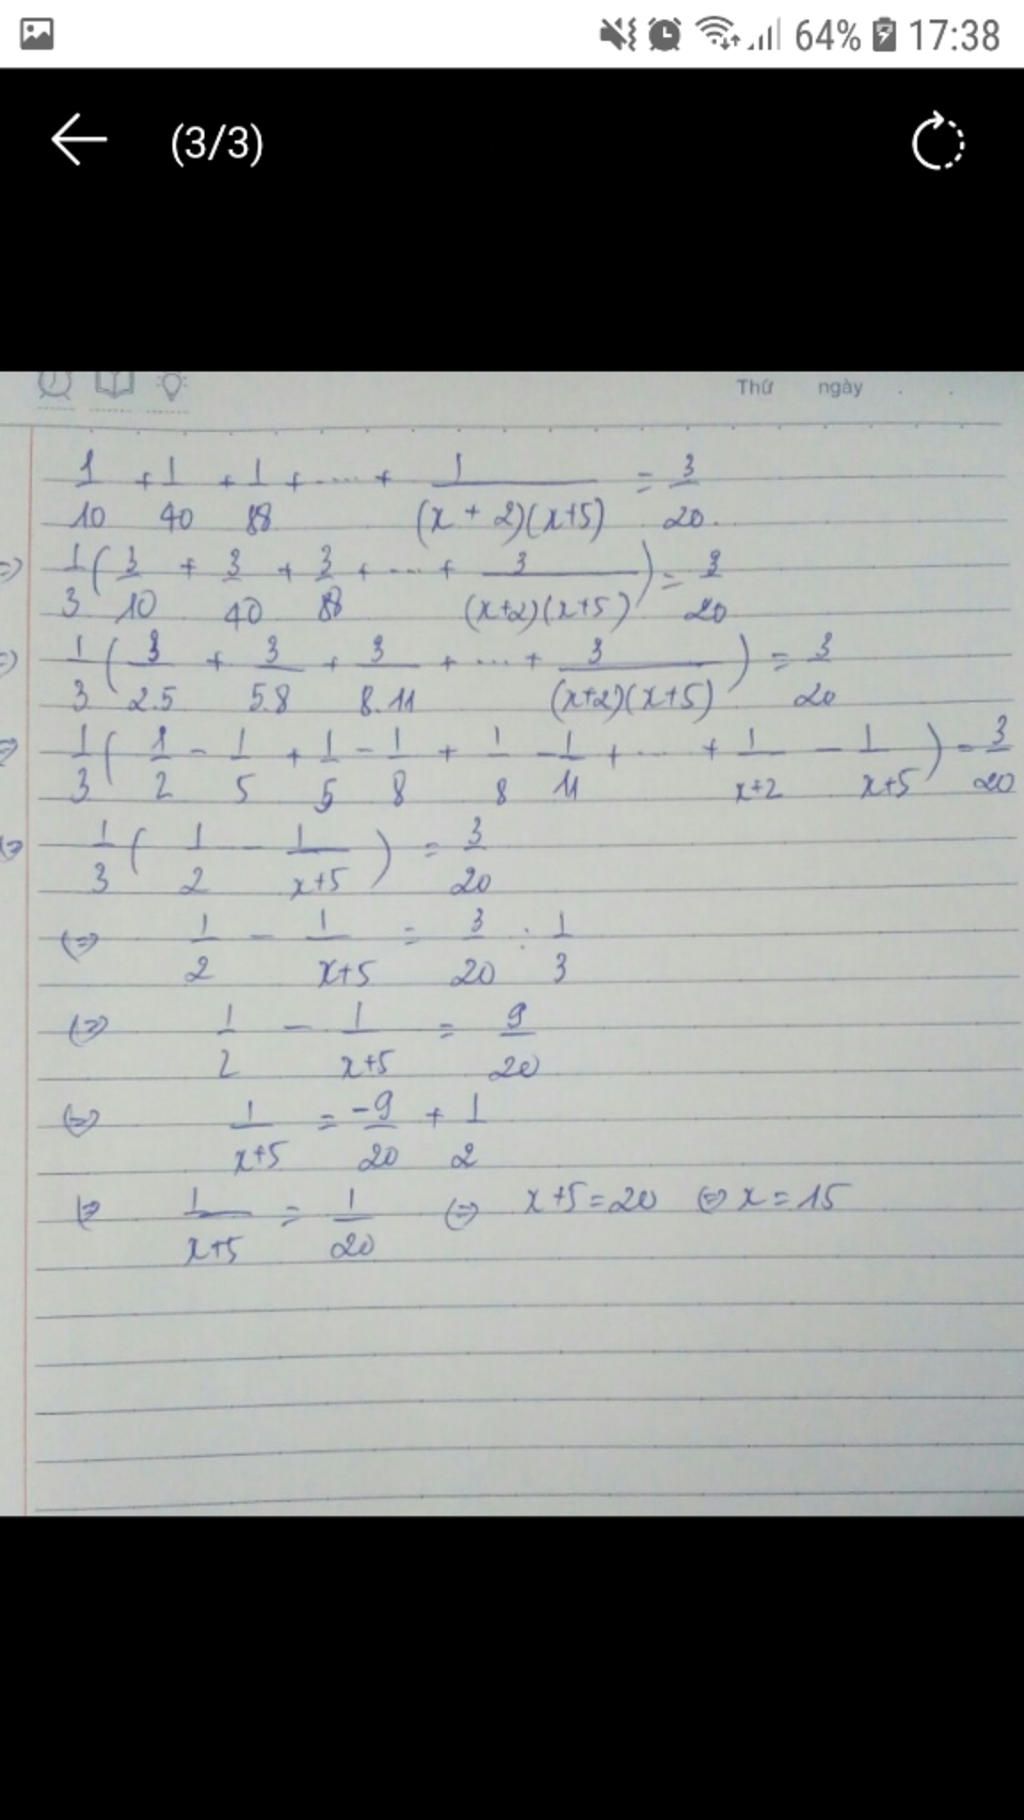 64% 17:38
(3/3)
Thứ ngày
1/10 + 1/40 + 1/88 + .... + 1/((x + 2)(x+5)) = 3/20
=> 1/3 ( 3/10 + 3/40 + 3/88 + ... + 3/((x+2)(x+5)) ) = 3/20
=> 1/3 ( 3/2.5 + 3/5.8 + 3/8.11 + ... + 3/((x+2)(x+5)) ) = 3/20
=> 1/3 ( 1/2 - 1/5 + 1/5 - 1/8 + 1/8 - 1/11 + ... + 1/(x+2) - 1/(x+5) ) = 3/20
<=> 1/3 ( 1/2 - 1/(x+5) ) = 3/20
<=> 1/2 - 1/(x+5) = 3/20 : 1/3
<=> 1/2 - 1/(x+5) = 9/20
<=> 1/(x+5) = -9/20 + 1/2
<=> 1/(x+5) = 1/20 <=> x+5=20 <=> x=15